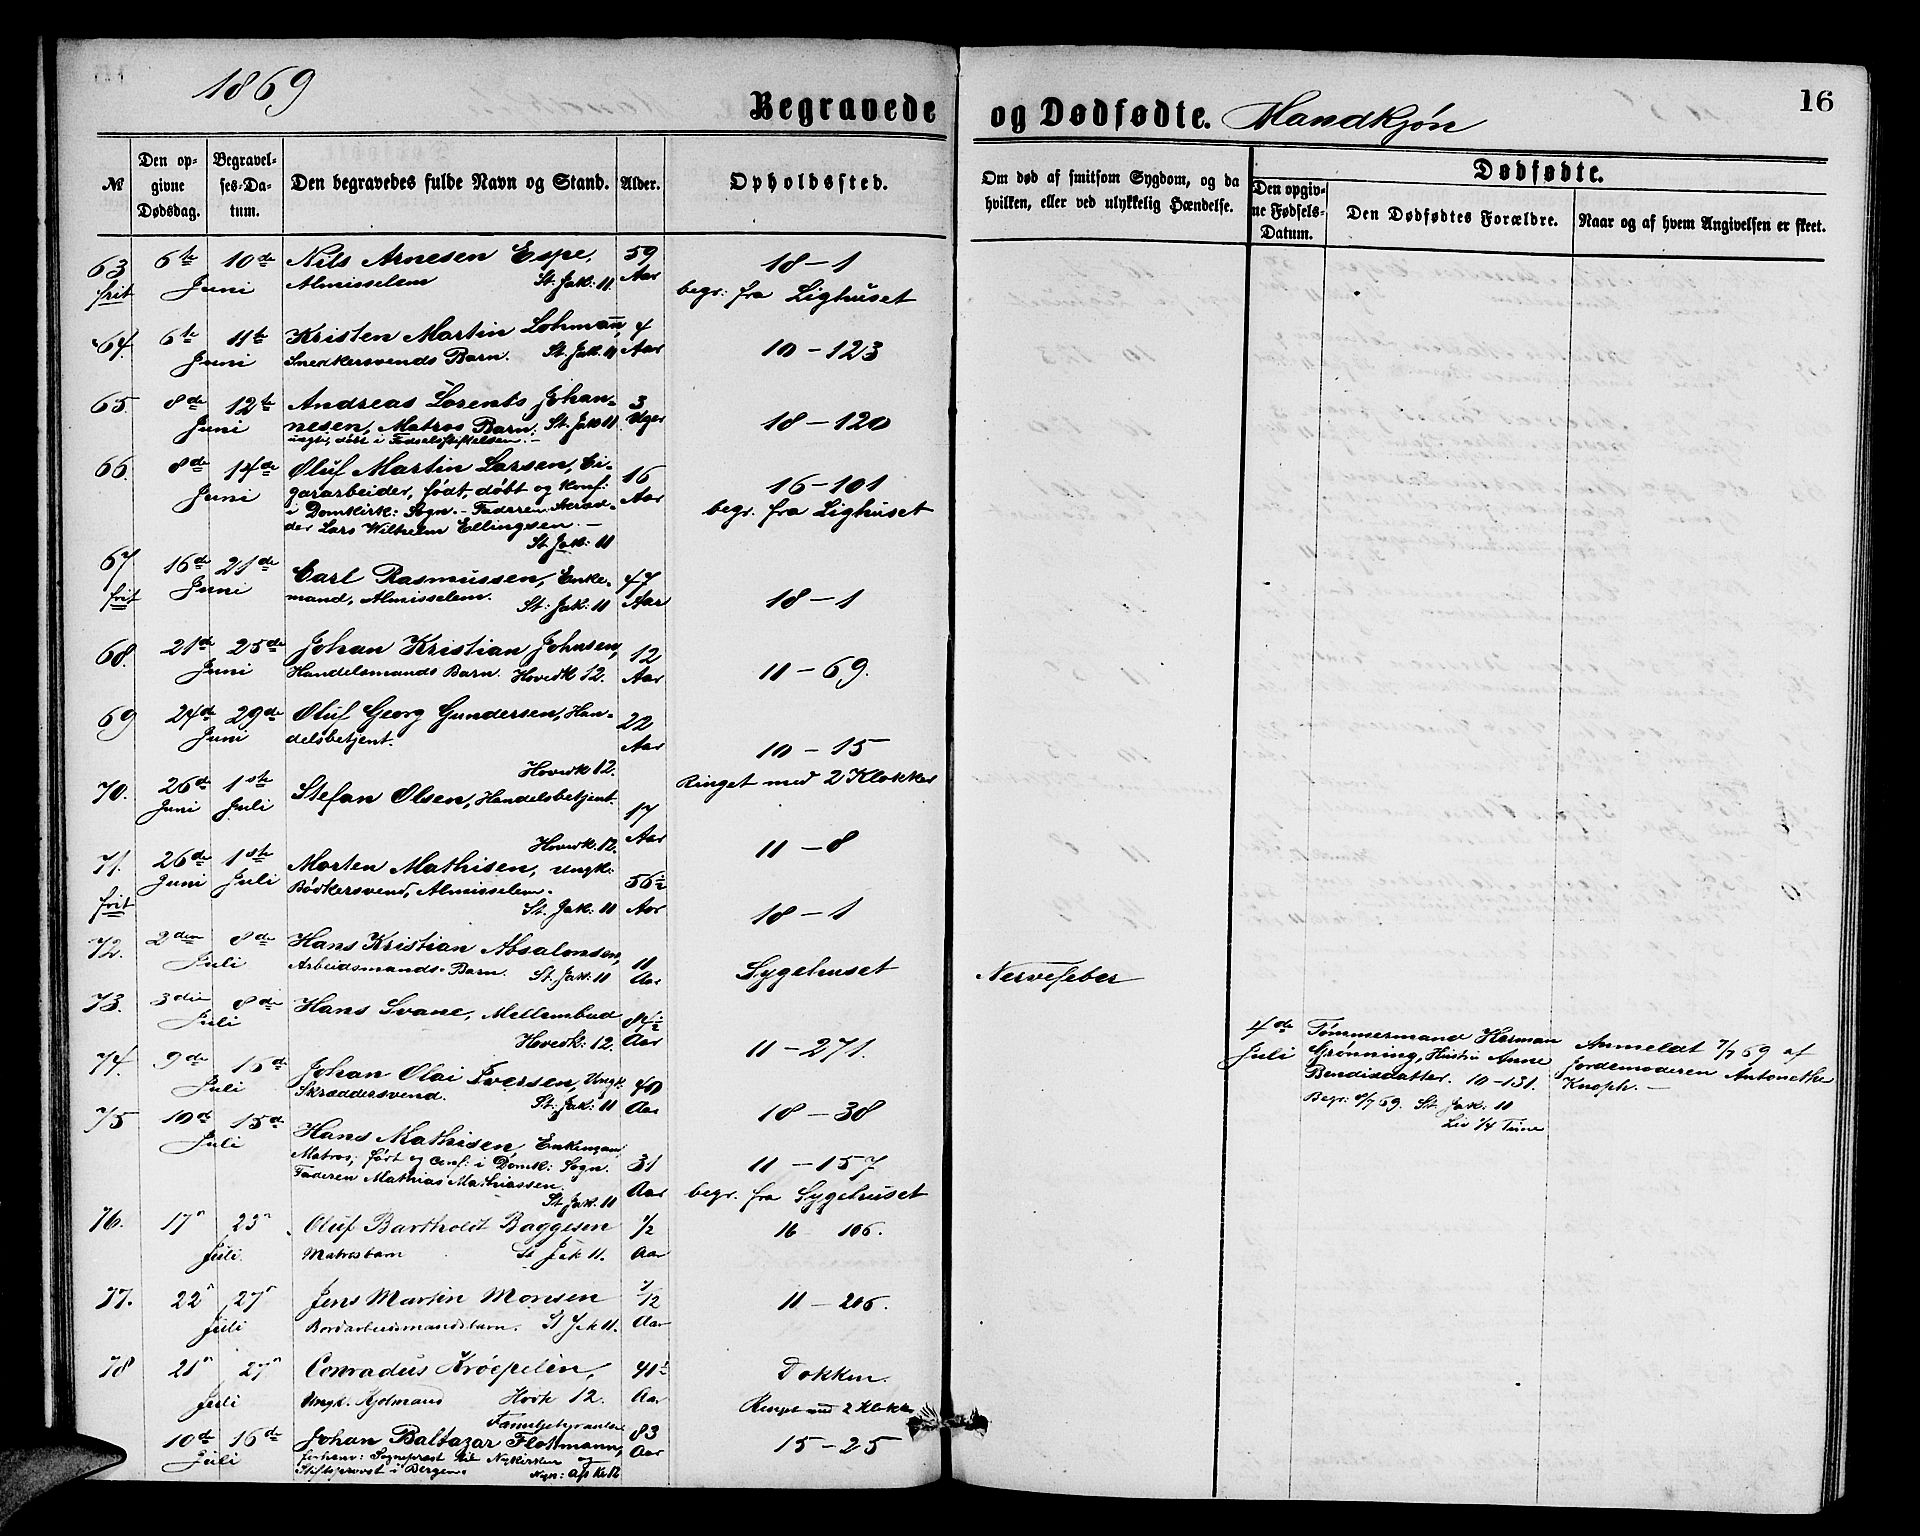 1869
Begravede og Dødfødte. Mandkjøn
16
№
Den opgivne Dødsdag.
Begravelses-Datum.
Den begravedes fulde Navn og Stand.
Alder.
Opholdssted.
Om død af smitsom Sygdom, og da hvilken, eller ved ulykkelig Hændelse.
Dødfødte.
Den opgivne Fødsels-Datum.
Den Dødfødtes Forældre.
Naar og af hvem Angivelsen er skeet.
63 6te 10de Nils Arnesen Espe, 59 18-1
frit Juni Almisselem St. Jak: 11 Aar begr: fra Lighuset
64. 6te 11te Kristen Martin Lohmann, 4
Juni Snedkersvends Barn. St. Jak. 11 Aar 10-123
65. 8de 12te Andreas Lorents Johan- 3
Juni nesen, Matros Barn: St. Jak 11 Uger 18-120
uægte, døbt i Fødselsstiftelsen. -
66. 8de 14de Oluf Martin Larsen, Ci- 16
Juni gararbeider, født, døbt og konf: Aar 16-101
i Domkirk: Sogn. - Faderen
der Lars Wilhelm Ellingsen. - begr. fra Lighuset
St. Jak: 11
67 16de 21de Carl Rasmussen, Enke- 47
frit Juni mand, Almisselem. St: Jak: 11 Aar 18-1
68. 21de 25de Johan Kristian Johnsen, 12
Juni Handelsmands Barn. Hovedk 12. Aar 11-69.
69 24de 29de Oluf Georg Gundersen, Han- 22
Juni delsbetjent. Aar 10-15
Hovedk 12. Ringet med 2 Klokker
70. 26de 1ste Stefan Olsen, Handelsbetjent. 17
Juni Juli Aar
Hovedk. 12. 11-8
71. 26de 1ste Morten Mathisen, Ungk: 56½
Juni Juli Bødkersvend, Almisselem.
frit St. Jak: 11 Aar 18-1
72. 2den 8de Hans Kristian Absalonsen, 11
Juli Arbeidsmands Barn. St. Jak: 11 Aar Sygehuset Nervefeber
73. 3die 8de Hans Svane, Mellembud 84½
Juli Hovedk: 12. Aar 11-271.
4de Juli
Tømmermand Herman
Grønning, Hustru Anne
Bendixdatter. 10-131.
Begr: 8/7 69. St. Jak: 11
Anmeldt 7/7 69 af
Jordemoderen Antonethe
Knoph. -
74. 9de 16de Johan Olai Iversen, Ungk. 40
Juli Skræddersvend. St: Jak: 11 Aar 18-38
75 10de 15de Hans Mathisen, Enkemand
Juli Matros, født og conf: i Domk: Sogn. 31 11-157
Faderen Mathias Mathiassen. Aar begr. fra Sygehuset
St. Jak 11
76. 17 23 Oluf Barthold Baggesen ½ 16 - 106.
Juli Matrosbarn St Jak 11. Aar
77. 22 27 Jens Martin Monsen 7/12 11-206.
Juli Bordarbeidsmandsbarn. St Jak 11. Aar
78 21 27 Conradus Krøepelin, 41½ Dokken.
Juli Ungk. Kjølmand Hovk 12. Aar Ringet med 2 Klokker
Familjebegravelse
10de 16de Johan Baltazar Flottmann, 83 15-25
Juli forhenv: Sogneprest til Nykirken og Aar
Stiftsprovst i Bergen.